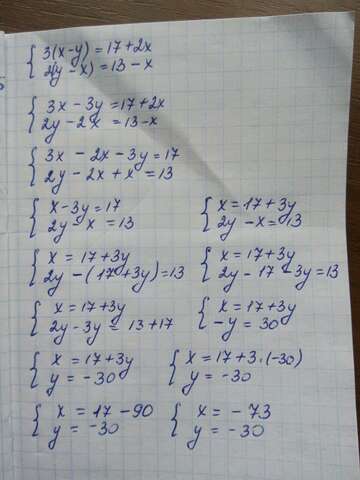 { 3(x-y) = 17 + 2x
2(y - x) = 13 - x
{ 3x - 3y = 17 + 2x
2y - 2x = 13 - x
{ 3x - 2x - 3y = 17
2y - 2x + x = 13
{ x - 3y = 17
2y - x = 13
{ x = 17 + 3y
2y - x = 13
{ x = 17 + 3y
2y - (17 + 3y) = 13
{ x = 17 + 3y
2y - 17 - 3y = 13
{ x = 17 + 3y
2y - 3y = 13 + 17
{ x = 17 + 3y
- y = 30
{ x = 17 + 3y
y = -30
{ x = 17 + 3·(-30)
y = -30
{ x = 17 - 90
y = -30
{ x = - 73
y = -30